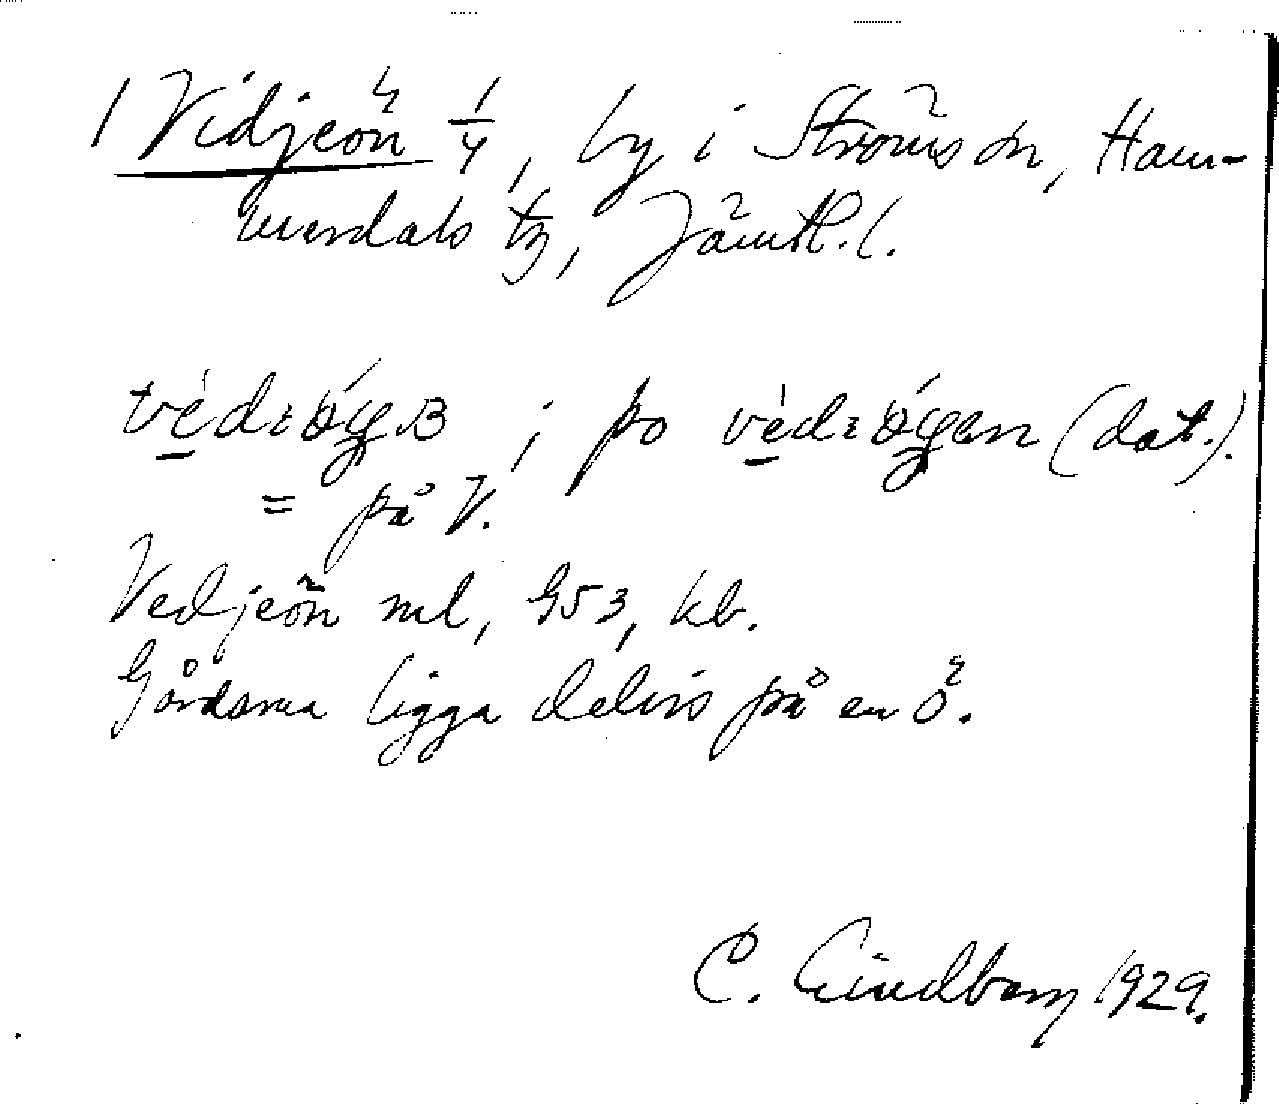 1 Vidjeön 1/4, by i Ströms sn, Ham-
merdals tg, Jämtl. l.
; po (dat.).
= på V.
Vedjeön ml, G53, kb.
Gårdarna ligga delvis på en ö.
C. Lindberg 1929.